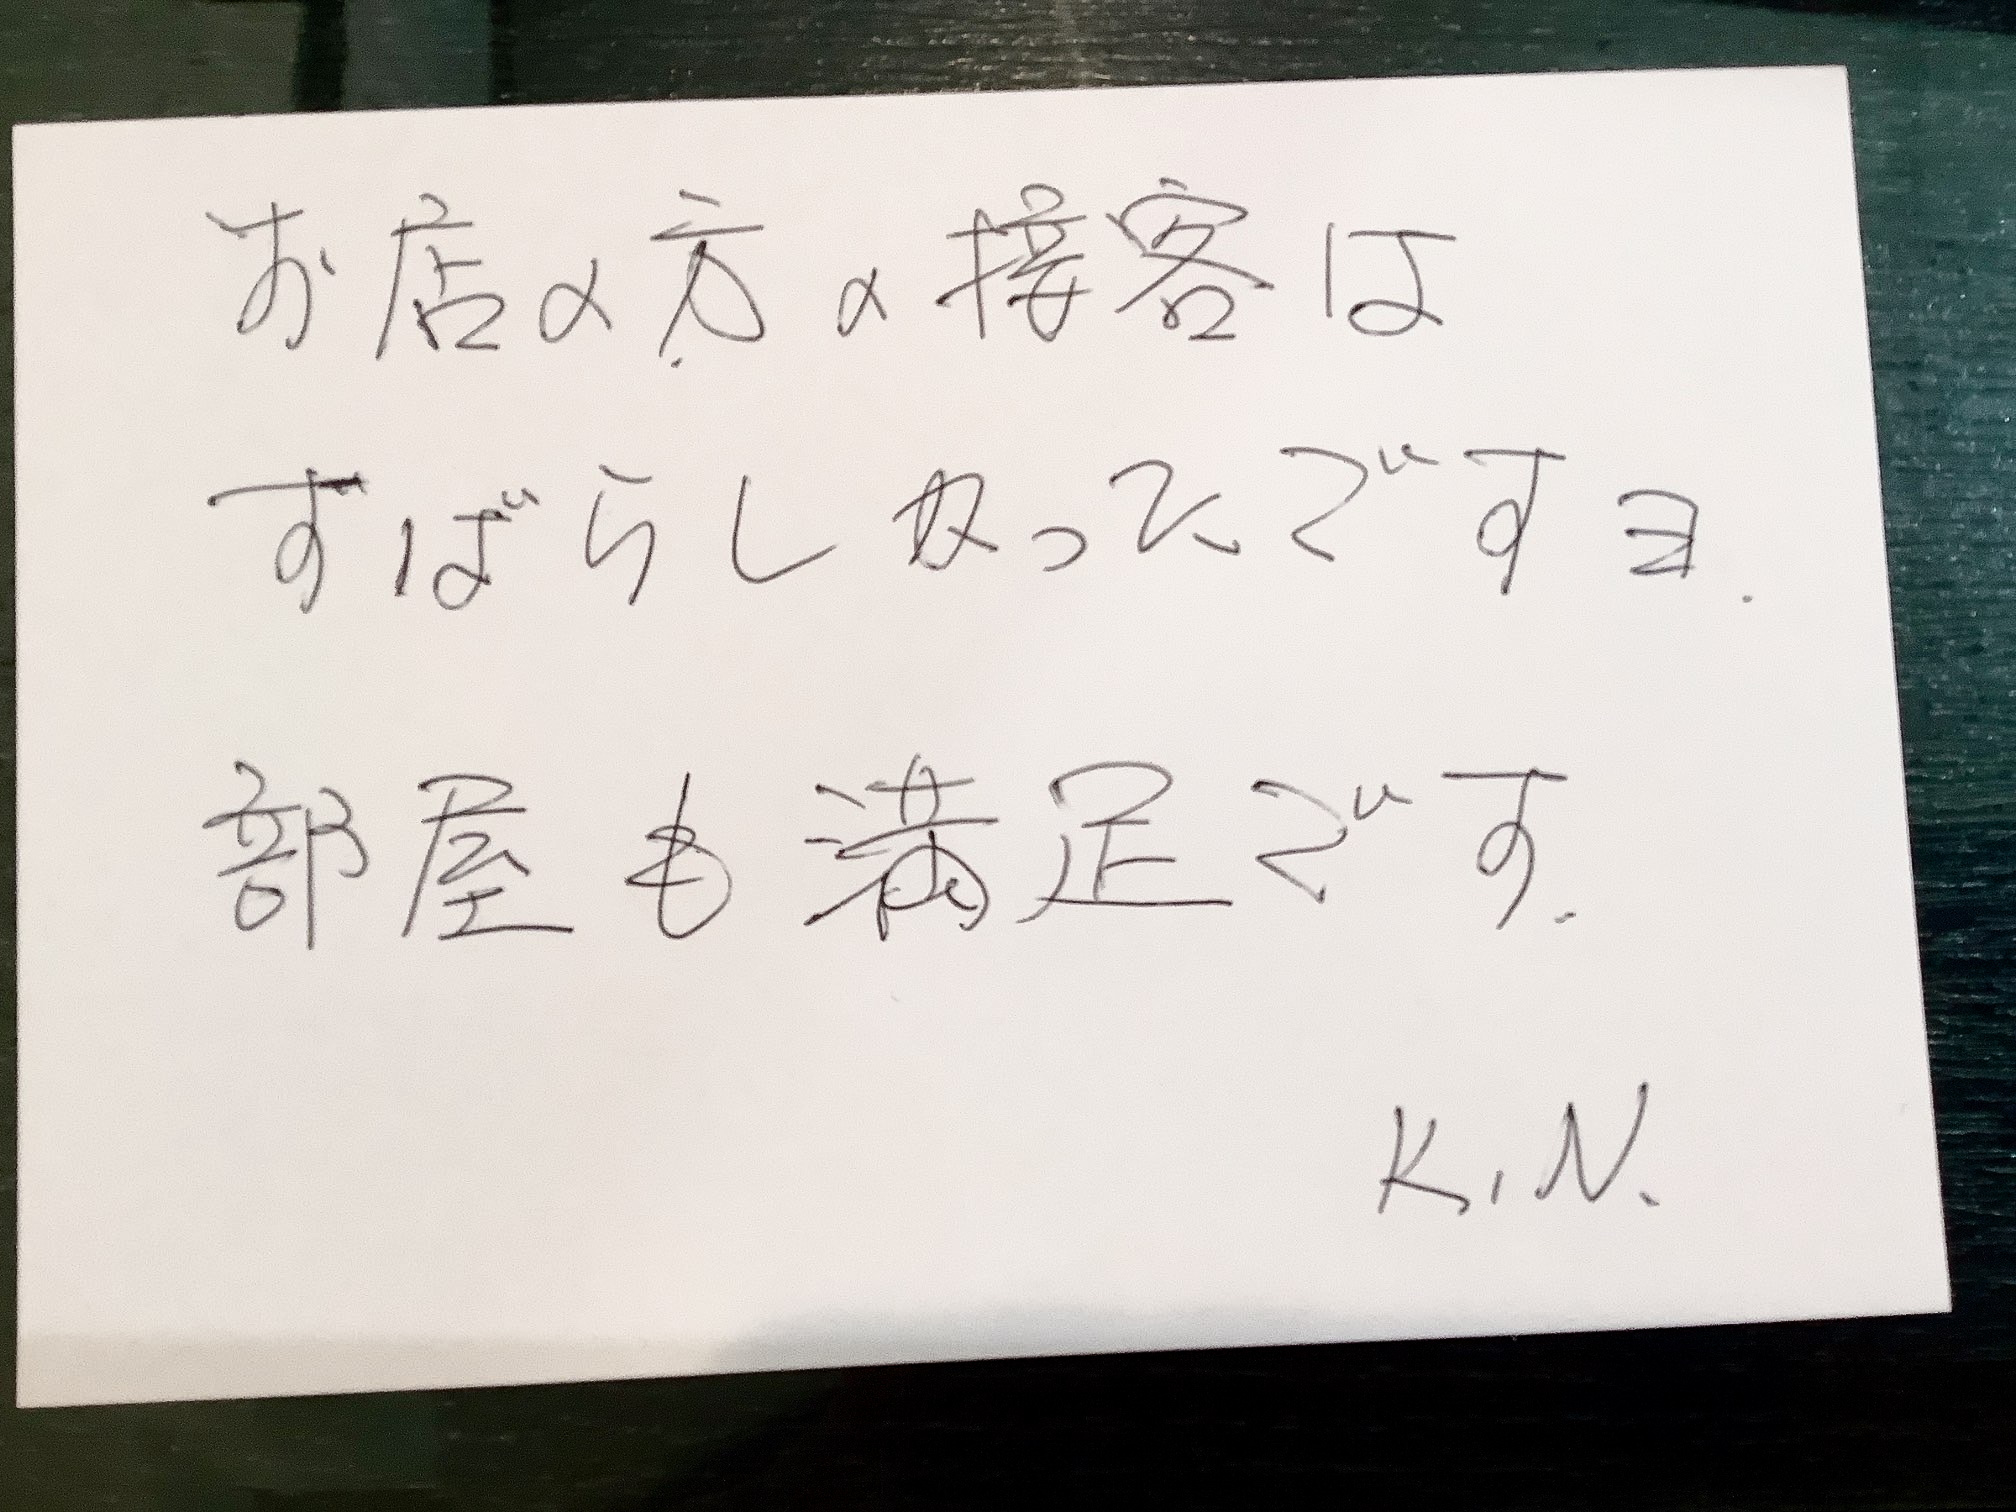 お店の方の接客は
すばらしかったですヨ.
部屋も満足です.
K.N.